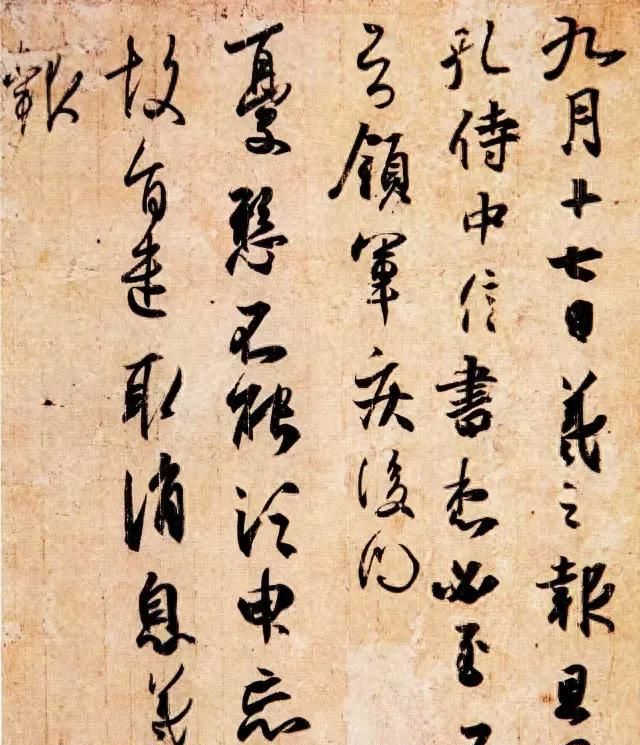 九月十七日羲之報且
孔侍中信書想必至
知領軍疾後問
憂懸不能須臾忘
故旨遣取消息羲
報